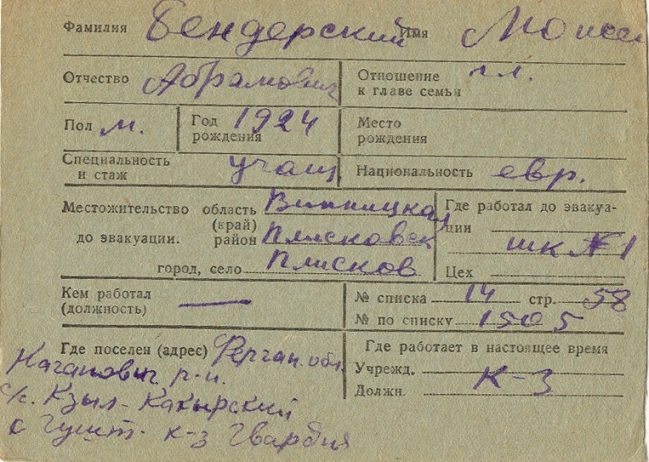 Фамилия Бендерский Имя Моисей
Отчество Абрамович Отношение к главе семьи гл.
Пол м. Год рождения 1924 Место рождения
Специальность и стаж учащ Национальность евр.
Местожительство область Винницкая Где работал до эвакуа-
(край) ции
до эвакуации. район Плисковск шк №1
город, село Плисков Цех
Кем работал (должность) — № списка 14 стр. 58
№ по списку 1505
Где поселен (адрес) Ферган. обл. Где работает в настоящее время
Каганович р-н. Учрежд. К-з
с/с. Кзыл-Какырский Должн.
к-з Гвардия